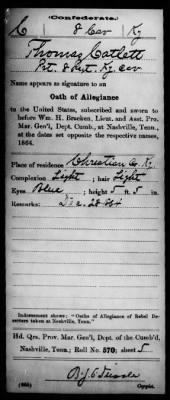 (Confederate.)
C 8 Cav Ky
Thomas Catlett
Pvt. 8 Regt. Ky. Cav
Name appears as signature to an
Oath of Allegiance
to the United States, subscribed and sworn to
before Wm. H. Bracken, Lieut. and Asst. Pro.
Mar. Gen'l, Dept. Cumb., at Nashville, Tenn.,
at the dates set opposite the respective names,
1864.
Place of residence Christian Co. Ky
Complexion Light ; hair Light
Eyes Blue ; height 5 ft. 5 in.
Remarks: Dec. 28 64
Indorsement shows: "Oaths of Allegiance of Rebel De-
serters taken at Nashville, Tenn."
Hd. Qrs. Prov. Mar. Gen'l, Dept. of the Cumb'd,
Nashville, Tenn.; Roll No. 570; sheet 5
Copyist.